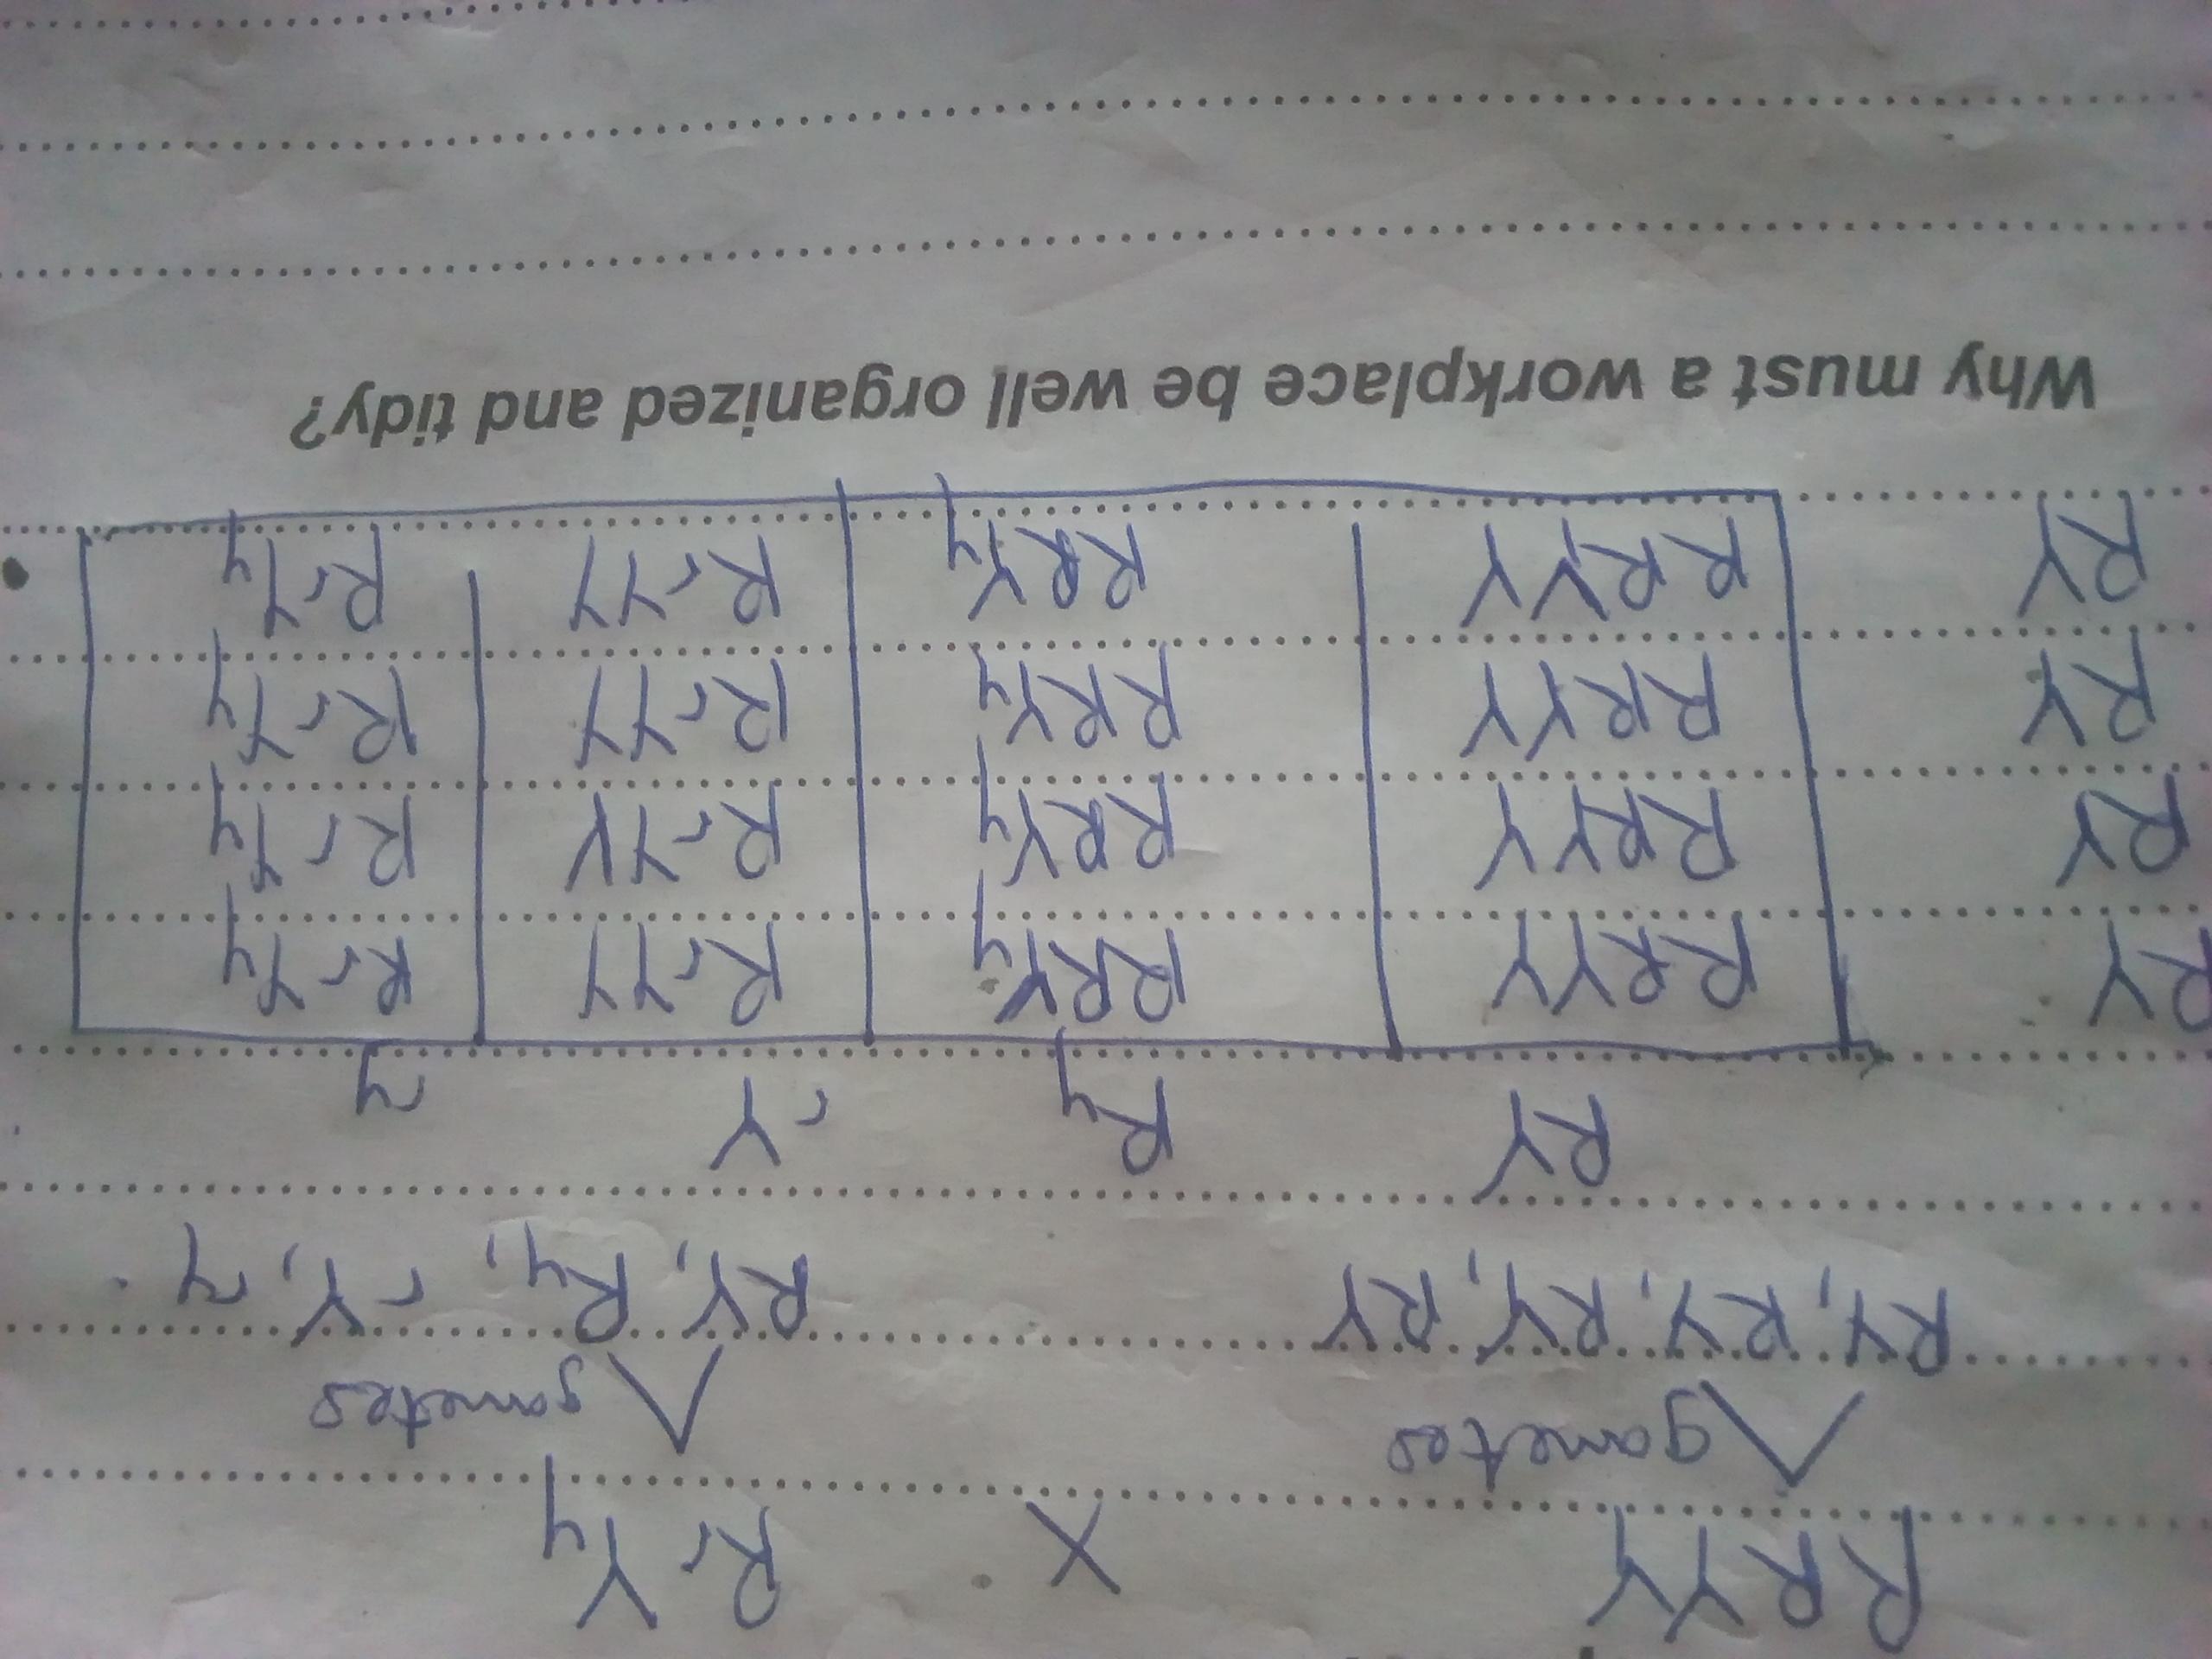 RRYY X RrYy
gametes gametes
RY, RY, RY, RY RY, Ry, rY, ry
RY Ry rY ry
RY RRYY RRYy RrYY RrYy
RY RRYY RRYy RrYY RrYy
RY RRYY RRYy RrYY RrYy
RY RRYY RRYy RrYY RrYy
Why must a workplace be well organized and tidy?